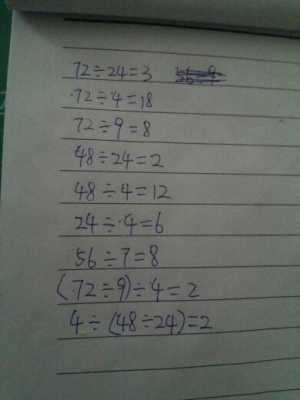 72÷24=3
72÷4=18
72÷9=8
48÷24=2
48÷4=12
24÷4=6
56÷7=8
(72÷9)÷4=2
4÷(48÷24)=2